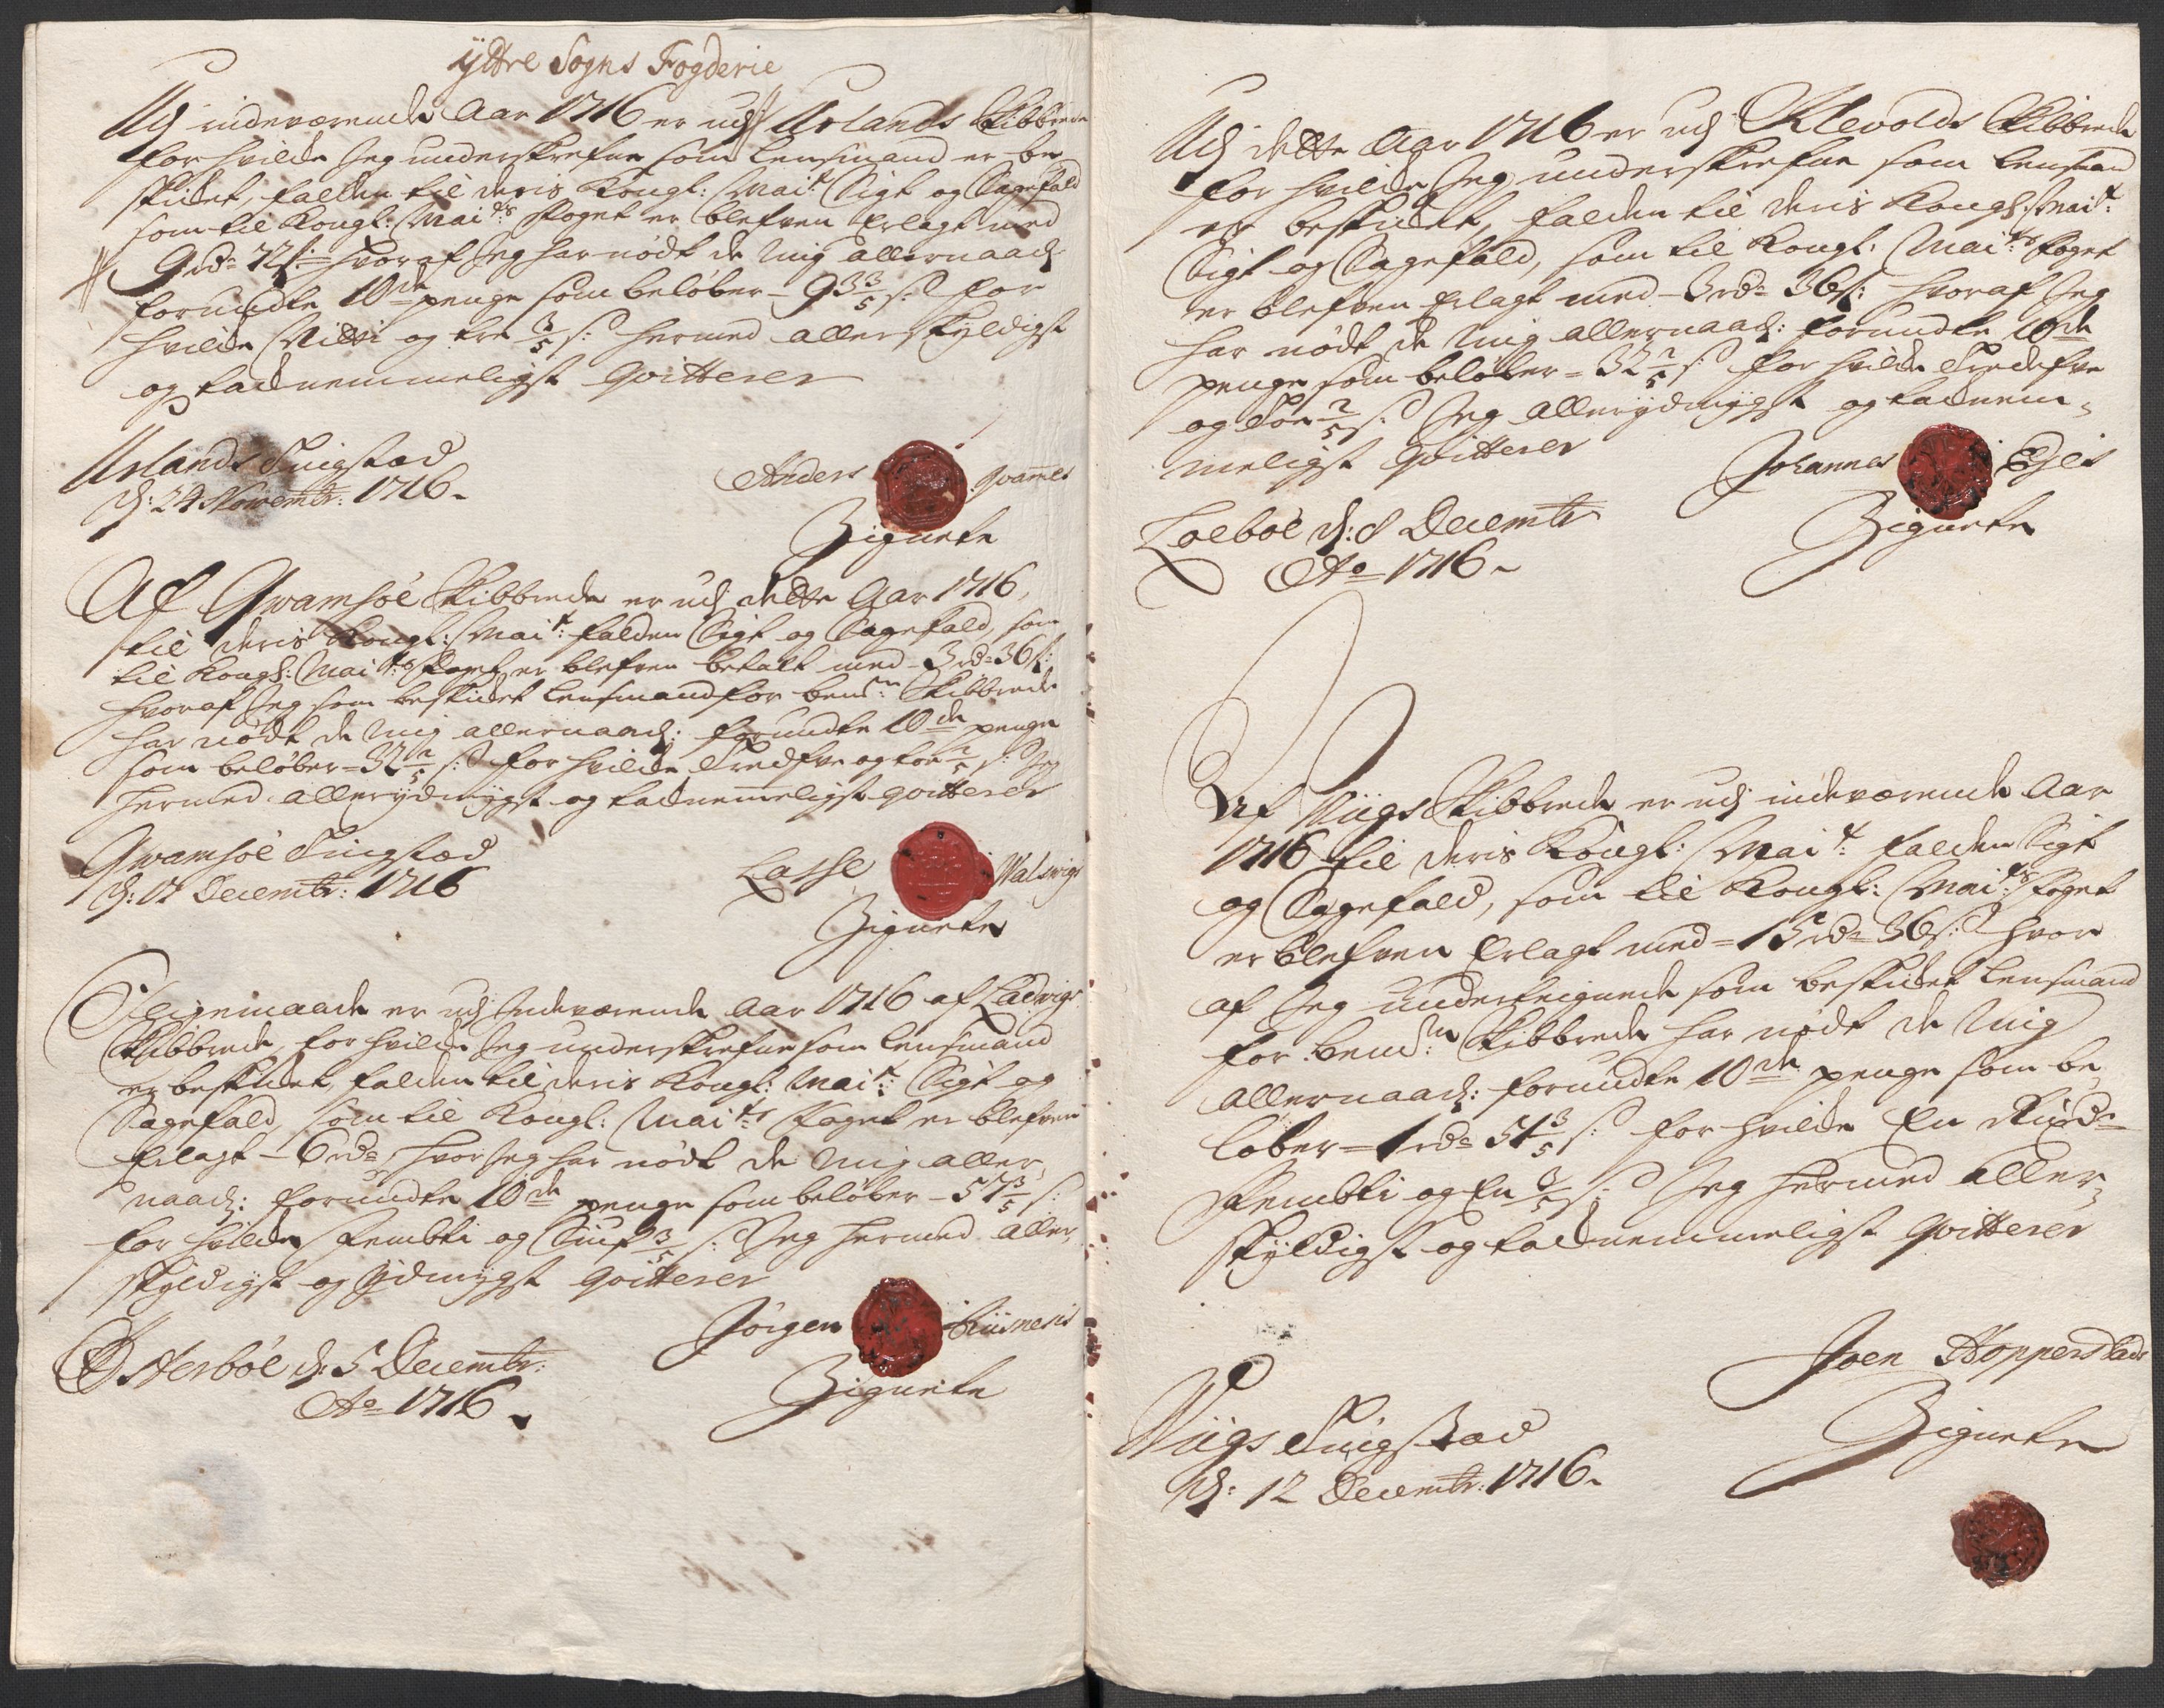 Ÿttre Sogns Fogderie
Udj indeværende Aar 1716 er udj Urlands Skibbrede
for hvilcke Jeg underskrefne som Lensmand er be
skicket, falden til deris Kongl: Mai:t Sigt og Sagefald
som til Kongl: Mai:ts Foget er blefven Erlagt med
9 rdr 72 s: hvoraf Jeg har nødt de Mig allernaad:
forundte 10de penge som beløber - 93 3/5 s: for
hvilcke Nitti og tre 3/5 s: hermed allerskyldigst
og tacknemmeligst qvitterer
Urlands Tingstæd
d: 24 Novembr: 1716.
Anders Qvammes
Zignete
Af Qwamsøe Skibbrede er udj dette Aar 1716,
til deris Kongl: Mai:t falden Sigt og Sagefald, som
til Kongl: Mai:ts Foget er blefven betalt med - 3 rdr 36 s:
hvoraf Jeg som beskicket Lensmand for bem:te Skibbrede
har nødt de Mig allernaad: forundte 10de penge
som beløber - 32 2/5 s: for hvilcke Tredfve og toe 2/5 s: Jeg
hermed allerydmygst og tacknemeligst qvitterer
Qwamsøe Tingstæd
d: 17 Decembr: 1716
Lasse Walsvigs
Zignete
Ligemaade er udj Indeværende Aar 1716 af Ladvigs
Skibbrede, for hvilcke Jeg underskrefne som Lensmand
er beskicket, falden til deris Kongl: Mai:t Sigt og
Sagefald, som til Kongl: Mai:ts Foget er blefven
Erlagt - 6 rdr, hvor Jeg har nødt de Mig aller,
naad: forundte 10de penge som beløber - 57 3/5 s:
for hvilcke Fembti og Siuf 3/5 s: Jeg hermed aller,
skyldigst og ydmygst qvitterer
Østerbøe d: 5 Decembr:
Ao 1716.
Jörgen Riisnesis
Zignete
Udj dette Aar 1716 er udj Klevolds Skibbrede
for hvilcke Jeg underskrefne som Lensmand
er beskicket, falden til deris Kongl: Mai:t
Sigt og Sagefald, som til Kongl: Mai:ts Foget
er blefven Erlagt med - 3 rdr 36 s: hvoraf Jeg
har nødt de Mig allernaad: forundte 10de
penge som beløber - 32 2/5 s: for hvilcke Tredefve
og Toe 2/5 s: Jeg Allerydmygst og tacknem-
meligst qvitterer
Johannes Eges
Zignete
Loebøe d: 8 Decembr
Ao 1716.
Af Wiigs Skibbrede er udj indeværende Aar
1716 til deris Kongl: Mai:t falden Sigt
og Sagefald, som til Kongl: Mai:ts Foget
er blefven Erlagt med - 15 rdr 36 s: hvor
af Jeg underteignede som beskicket Lensmand
for bem:te Skibbrede har nødt de Mig
allernaad: forundte 10de penge som be,
løber - 1 rdr 51 3/5 s: for hvilcke En Rixdr
Fembti og En 3/5 s: Jeg hermed aller-
skyldigst og tacknemmeligst qvitterer
Joen Hopperstads
Zignete
Wiigs Tingstæd
d: 12 Decembr: 1716.